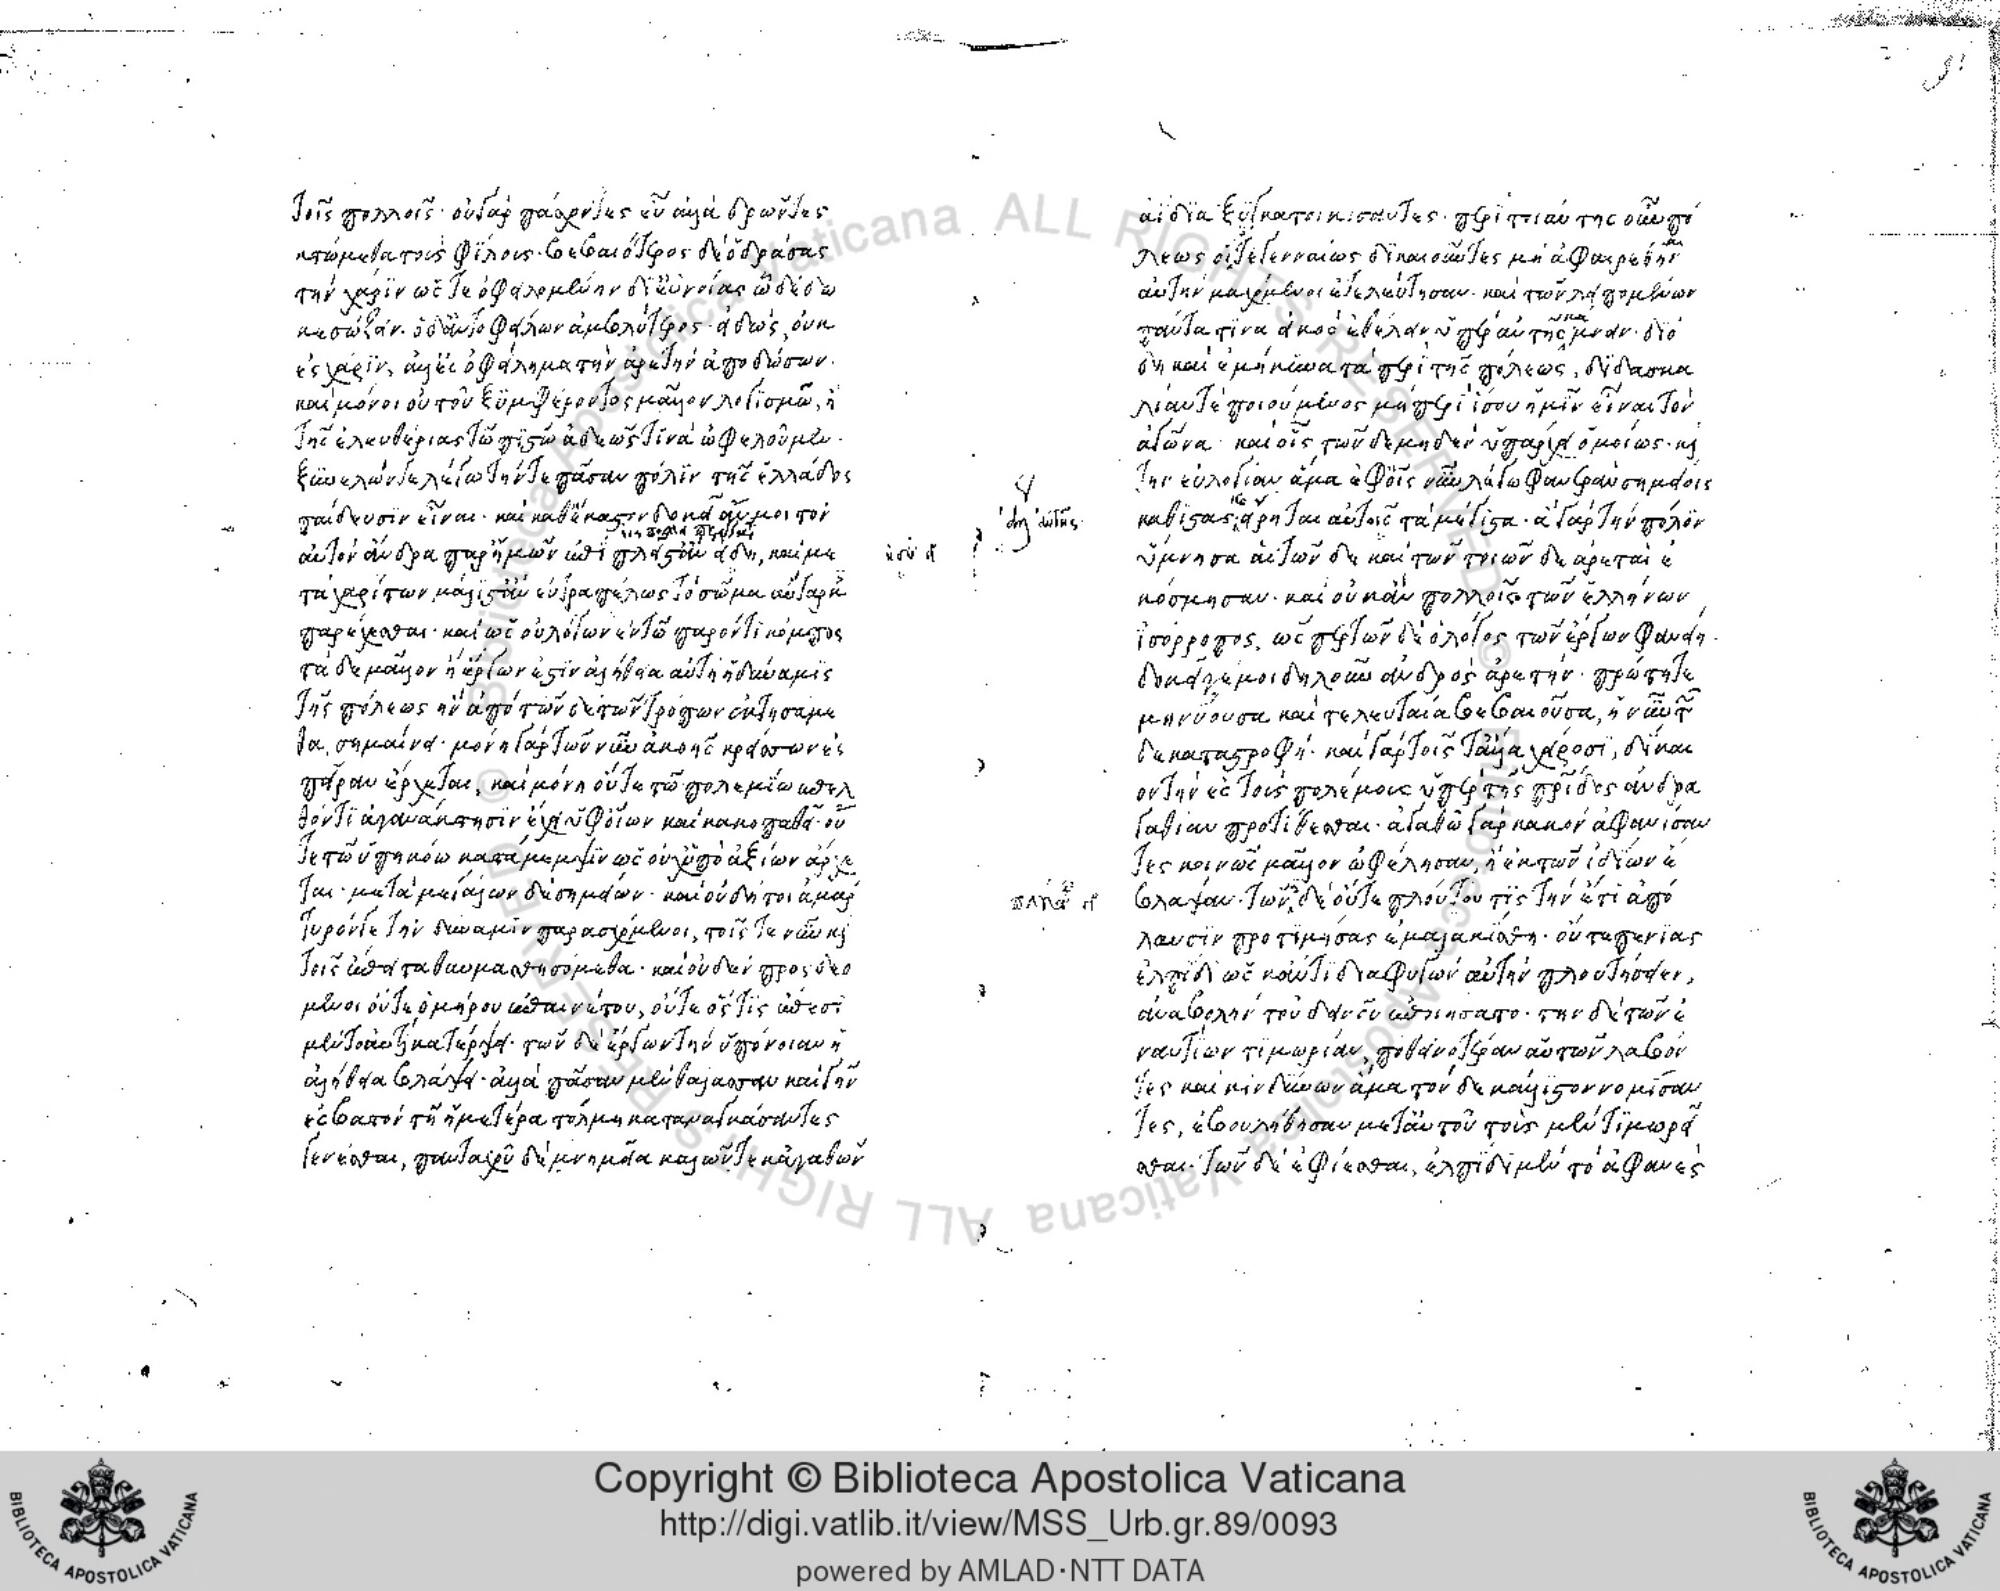 τοῖς πολλοῖς· οὐ γὰρ πάσχοντες εὖ ἀλλὰ δρῶντες
κτώμεθα τοὺς φίλους· βεβαιότερος δὲ ὁ δράσας
τὴν χάριν ὥστε ὀφειλομένην δι' εὐνοίας ᾧ δέδω
κε σώζειν· ὁ δ' ἀντοφείλων ἀμβλύτερος· εἰδὼς, οὐκ
ἐς χάριν, ἀλλ' ἐς ὀφείλημα τὴν ἀρετὴν ἀποδώσων·
καὶ μόνοι οὐ τοῦ ξυμφέροντος μᾶλλον λογισμῶ, ἢ
τῆς ἐλευθερίας τῶ πιστῶ ἀδεῶς τινὰ ὠφελοῦμεν·
ξυνελών τε λέγω τήν τε πᾶσαν πόλιν τῆς ἑλλάδος
παίδευσιν εἶναι· καὶ καθ' ἕκαστον δοκεῖν ἄν μοι τὸν
αὐτὸν ἄνδρα παρ' ἡμῶν ἐπὶ πλεῖστ' ἂν εἴδη, καὶ με
τὰ χαρίτων μάλιστ' ἂν εὐτραπέλως τὸ σῶμα αὔταρκες
παρέχεσθαι· καὶ ὡς οὐ λόγων ἐν τῶ παρόντι κόμπος
τάδε μᾶλλον ἢ ἔργων ἐστὶν ἀλήθεια αὐτὴ ἡ δύναμις
τῆς πόλεως ἣν ἀπὸ τῶνδε τῶν τρόπων ἐκτησάμε
θα, σημαίνει· μόνη γὰρ τῶν νῦν ἀκοῆς κρείσσων ἐς
πεῖραν ἔρχεται, καὶ μόνη οὔτε τῶ πολεμίω ἐπελ
θόντι ἀγανάκτησιν ἔχει ὑφ' οἵων καὶ κακοπαθεῖ· οὔ
τε τῶ ὑπηκόω κατάμεμψιν ὡς οὐχ ὑπὸ ἀξίων ἄρχε
ται· μετὰ μεγάλων δὲ σημείων· καὶ οὐ δή τοι ἀμάρ
τυρόν γε τὴν δύναμιν παρασχόμενοι, τοῖς τε νῦν καὶ
τοῖς ἔπειτα θαυμασθησόμεθα· καὶ οὐδὲν προσδεό
μενοι οὔτε ὁμήρου ἐπαινέτου, οὔτε ὅστις ἔπεσι
μὲν τὸ αὐτίκα τέρψει· τῶν δὲ ἔργων τὴν ὑπόνοιαν ἡ
ἀλήθεια βλάψει· ἀλλὰ πᾶσαν μὲν θάλασσαν καὶ γῆν
ἐσβατὸν τῆ ἡμετέρα τόλμη καταναγκάσαντες
γενέσθαι, πανταχοῦ δὲ μνημεῖα κακῶν τε κἀγαθῶν
ἀΐδια ξυγκατοικίσαντες· περὶ τοιαύτης οὖν πό
λεως οἵδε γενναίως δικαιοῦντες μὴ ἀφαιρεθῆναι
αὐτὴν μαχόμενοι ἐτελεύτησαν· καὶ τῶν λειπομένων
πάντα τινὰ εἰκὸς ἐθέλειν ὑπὲρ αὐτῆς κάμνειν· διὸ
δὴ καὶ ἐμήκυνα τὰ περὶ τῆς πόλεως, διδασκα
λίαν τε ποιούμενος μὴ περὶ ἴσου ἡμῖν εἶναι τὸν
ἀγῶνα· καὶ οἷς τῶνδε μηδὲν ὑπάρχει ὁμοίως· καὶ
τὴν εὐλογίαν ἅμα ἐφ' οἷς νῦν λέγω φανερὰν σημείοις
καθιστάς· καὶ εἴρηται αὐτῆς τὰ μέγιστα· ἃ γὰρ τὴν πόλιν
ὕμνησα αἱ τῶνδε καὶ τῶν τοιῶνδε ἀρεταὶ ἐ
κόσμησαν· καὶ οὐκ ἂν πολλοῖς τῶν ἑλλήνων
ἰσόρροπος, ὥσπερ τῶνδε ὁ λόγος τῶν ἔργων φανείη·
δοκεῖ δέ μοι δηλοῦν ἀνδρὸς ἀρετὴν· πρώτη τε
μηνύουσα καὶ τελευταία βεβαιοῦσα, ἡ νῦν τῶν
δε καταστροφή· καὶ γὰρ τοῖς τἆλλα χείροσι, δίκαι
ον τὴν ἐς τοὺς πολέμους ὑπὲρ τῆς πρίδος ἀνδρα
γαθίαν προτίθεσθαι· ἀγαθῶ γὰρ κακὸν ἀφανίσαν
τες κοινῶς μᾶλλον ὠφέλησαν, ἢ ἐκ τῶν ἰδίων ἔ
βλαψαν· τῶνδε δὲ οὔτε πλούτου τις τὴν ἔτι ἀπό
λαυσιν προτιμήσας ἐμαλακίσθη· οὔτε πενίας
ἐλπίδι ὡς κἂν ἔτι διαφυγὼν αὐτὴν πλουτήσειεν,
ἀναβολὴν τοῦ δεινοῦ ἐποιήσατο· τὴν δὲ τῶν ἐ
ναντίων τιμωρίαν, ποθεινοτέραν αὐτῶν λαβόν
τες καὶ κινδύνων ἅμα τόνδε κάλλιστον νομίσαν
τες, ἐβουλήθησαν μετ' αὐτοῦ τοὺς μὲν τιμωρεῖ
σθαι· τῶν δὲ ἐφίεσθαι, ἐλπίδι μὲν τὸ ἀφανὲς